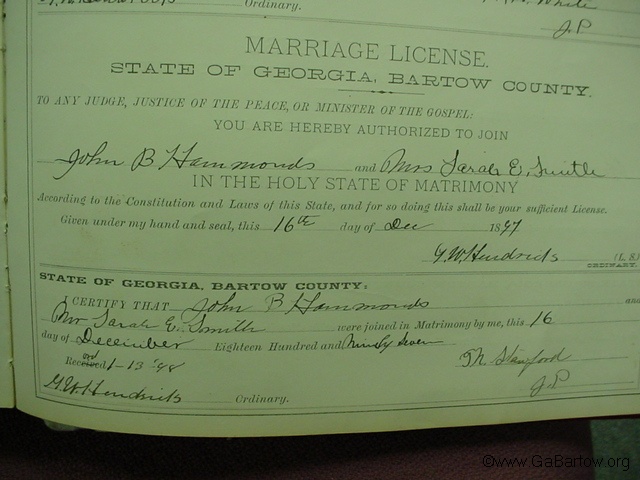 Ordinary. White
J.P
MARRIAGE LICENSE.
STATE OF GEORGIA, BARTOW COUNTY.
TO ANY JUDGE, JUSTICE OF THE PEACE, OR MINISTER OF THE GOSPEL:
YOU ARE HEREBY AUTHORIZED TO JOIN
John B Hammonds and Mrs Sarah E. Smith
IN THE HOLY STATE OF MATRIMONY
According to the Constitution and Laws of this State, and for so doing this shall be your sufficient License.
Given under my hand and seal, this 16th day of Dec 1897
G.W. Hendricks (L. S.)
ORDINARY.
STATE OF GEORGIA, BARTOW COUNTY:
I CERTIFY THAT John B Hammonds and
Mrs Sarah E. Smith were joined in Matrimony by me, this 16
day of December Eighteen Hundred and Ninety Seven
Stanford
1-13-'98
J.P
G.W Hendricks Ordinary.
©www.GaBartow.org